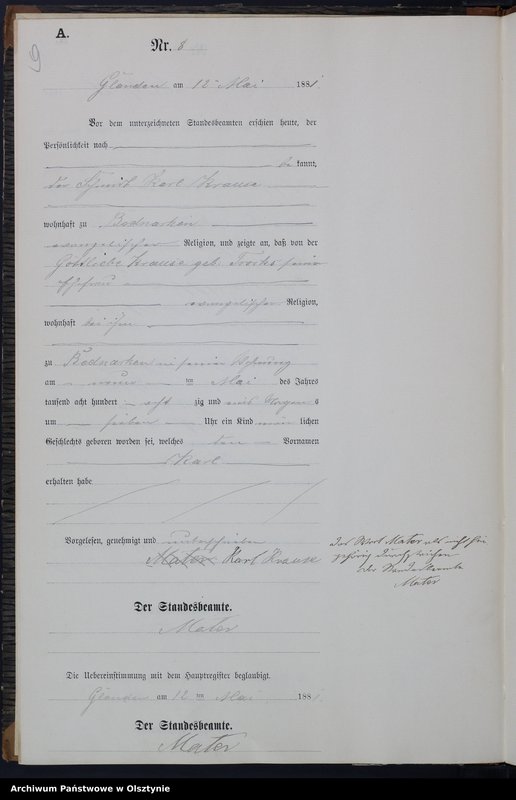 A.
9
Nr. 8
Glanden am 12 Mai 1881.
Vor dem unterzeichneten Standesbeamten erschien heute, der
Persönlichkeit nach
be kannt,
der Schmied Karl Krause
wohnhaft zu Bodnarken
evangelischer Religion, und zeigte an, daß von der
Gottliebe Krause geb. seiner
Ehefrau
evangelischer Religion,
wohnhaft bei ihm
zu Bodnarken in seiner Wohnung
am neun ten Mai des Jahres
tausend acht hundert acht zig und eins Morgen s
um sieben Uhr ein Kind männ lichen
Geschlechts geboren worden sei, welches den Vornamen
Karl
erhalten habe
Vorgelesen, genehmigt und unterschrieben
Mater Karl Krause
das Wort Mater als nicht hin
gehörig durchstrichen
der Standesbeamte
Mater
Der Standesbeamte.
Mater
Die Uebereinstimmung mit dem Hauptregister beglaubigt.
Glanden am 12 ten Mai 1881.
Der Standesbeamte.
Mater
Archiwum Państwowe w Olsztynie